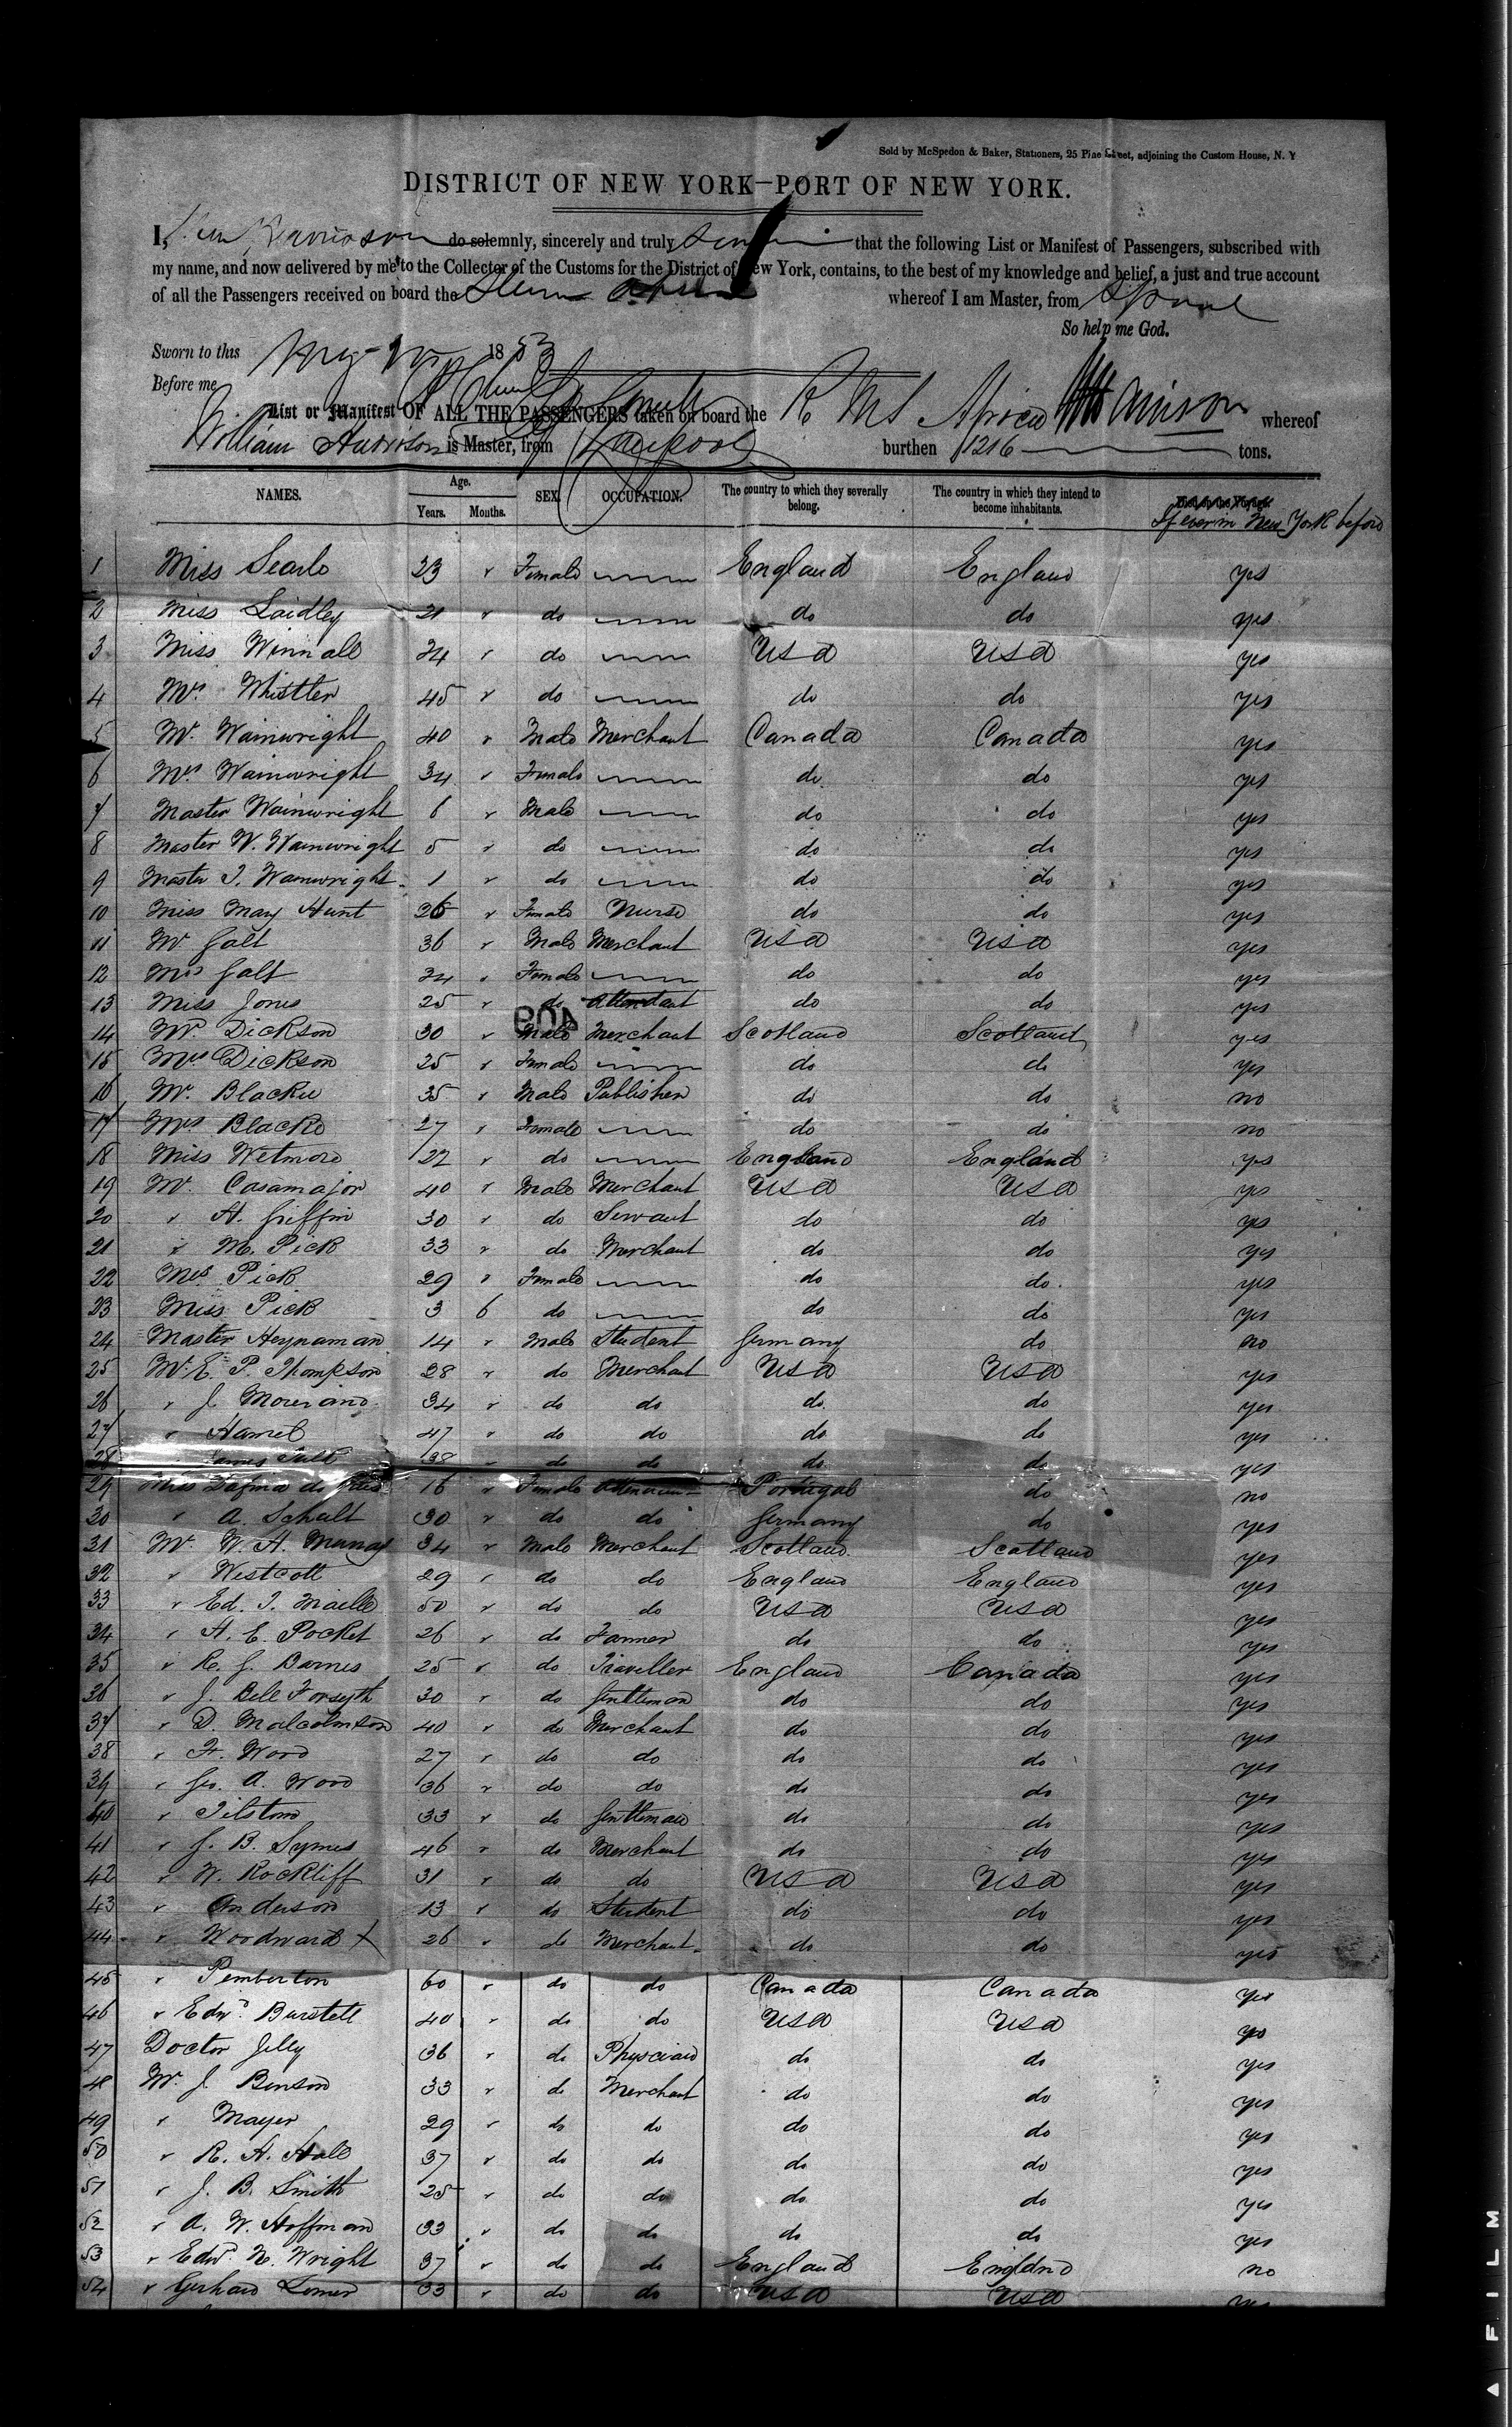 Sold by McSpedon & Baker, Stationers, 25 Pine Street, adjoining the Custom House, N. Y
DISTRICT OF NEW YORK—PORT OF NEW YORK.
I, do solemnly, sincerely and truly that the following List or Manifest of Passengers, subscribed with
my name, and now delivered by me to the Collector of the Customs for the District of New York, contains, to the best of my knowledge and belief, a just and true account
of all the Passengers received on board the whereof I am Master, from
So help me God.
Sworn to this 1853
Before me
List or Manifest OF ALL THE PASSENGERS taken on board the R M S Africa whereof
William Harrison is Master, from Liverpool burthen 1216 tons.
NAMES. Age. Years. Months. SEX. OCCUPATION. The country to which they severally belong. The country in which they intend to become inhabitants. If ever in New York before
1 Miss Searle 23 " Female England England yes
2 Miss Laidley 21 " do do do yes
3 Miss Winnall 24 " do USA USA yes
4 Mrs Whistler 45 " do do do yes
5 Mr. Wainwright 40 " Male Merchant Canada Canada yes
6 Mrs Wainwright 34 " Female do do yes
7 Master Wainwright 6 " Male do do yes
8 Master W. Wainwright 5 " do do do yes
9 Master J. Wainwright 1 " do do do yes
10 Miss Mary Hunt 26 " Female Nurse do do yes
11 Mr Galt 36 " Male Merchant USA USA yes
12 Mrs Galt 34 " Female do do yes
13 Miss Jones 25 " do Attendant do do yes
14 Mr. Dickson 30 " Male Merchant Scotland Scotland yes
15 Mrs Dickson 25 " Female do do yes
16 Mr. Blackie 35 " Male Publisher do do no
17 Mrs Blackie 27 " Female do do no
18 Miss Wetmore 22 " do England England yes
19 Mr. Casamajor 40 " Male Merchant USA USA yes
20 " H. Griffin 30 " do Servant do do yes
21 " M. Pick 33 " do Merchant do do yes
22 Mrs Pick 29 " Female do do yes
23 Miss Pick 3 6 do do do yes
24 Master Heynaman 14 " Male Student Germany do no
25 Mr. E. P. Thompson 28 " do Merchant USA USA yes
26 " J. 34 " do do do do yes
27 " Hamel 47 " do do do do yes
28 38 " do do do do yes
29 Miss 16 " Female Attendant Portugal do no
30 " A. Schalt 30 " do do Germany do yes
31 Mr. W. H. Murray 34 " Male Merchant Scotland Scotland yes
32 " Westcott 29 " do do England England yes
33 " Ed. J. Maille 50 " do do USA USA yes
34 " H. E. Pocket 26 " do Farmer do do yes
35 " R. J. Barnes 25 " do Traveller England Canada yes
36 " J. Bell Forsyth 30 " do Gentleman do do yes
37 " D. Malcolmson 40 " do Merchant do do yes
38 " F. Wood 27 " do do do do yes
39 " Geo. A. Wood 36 " do do do do yes
40 " Tilston 33 " do Gentleman do do yes
41 " G. B. Symes 46 " do Merchant do do yes
42 " W. Rockliff 31 " do do USA USA yes
43 " Anderson 13 " do Student do do yes
44 " Woodward X 26 " do Merchant do do yes
45 " Pemberton 60 " do do Canada Canada yes
46 " Edwd. Burstell 40 " do do USA USA yes
47 Doctor Jelly 36 " do Physician do do yes
48 Mr. J. Benson 33 " do Merchant do do yes
49 " Mayer 29 " do do do do yes
50 " R. H. Hall 37 " do do do do yes
51 " J. B. Smith 25 " do do do do yes
52 " A. W. Hoffman 33 " do do do do yes
53 " Edwd. N. Wright 37 " do do England England no
54 " Gerhard 33 " do do USA USA yes
FILM